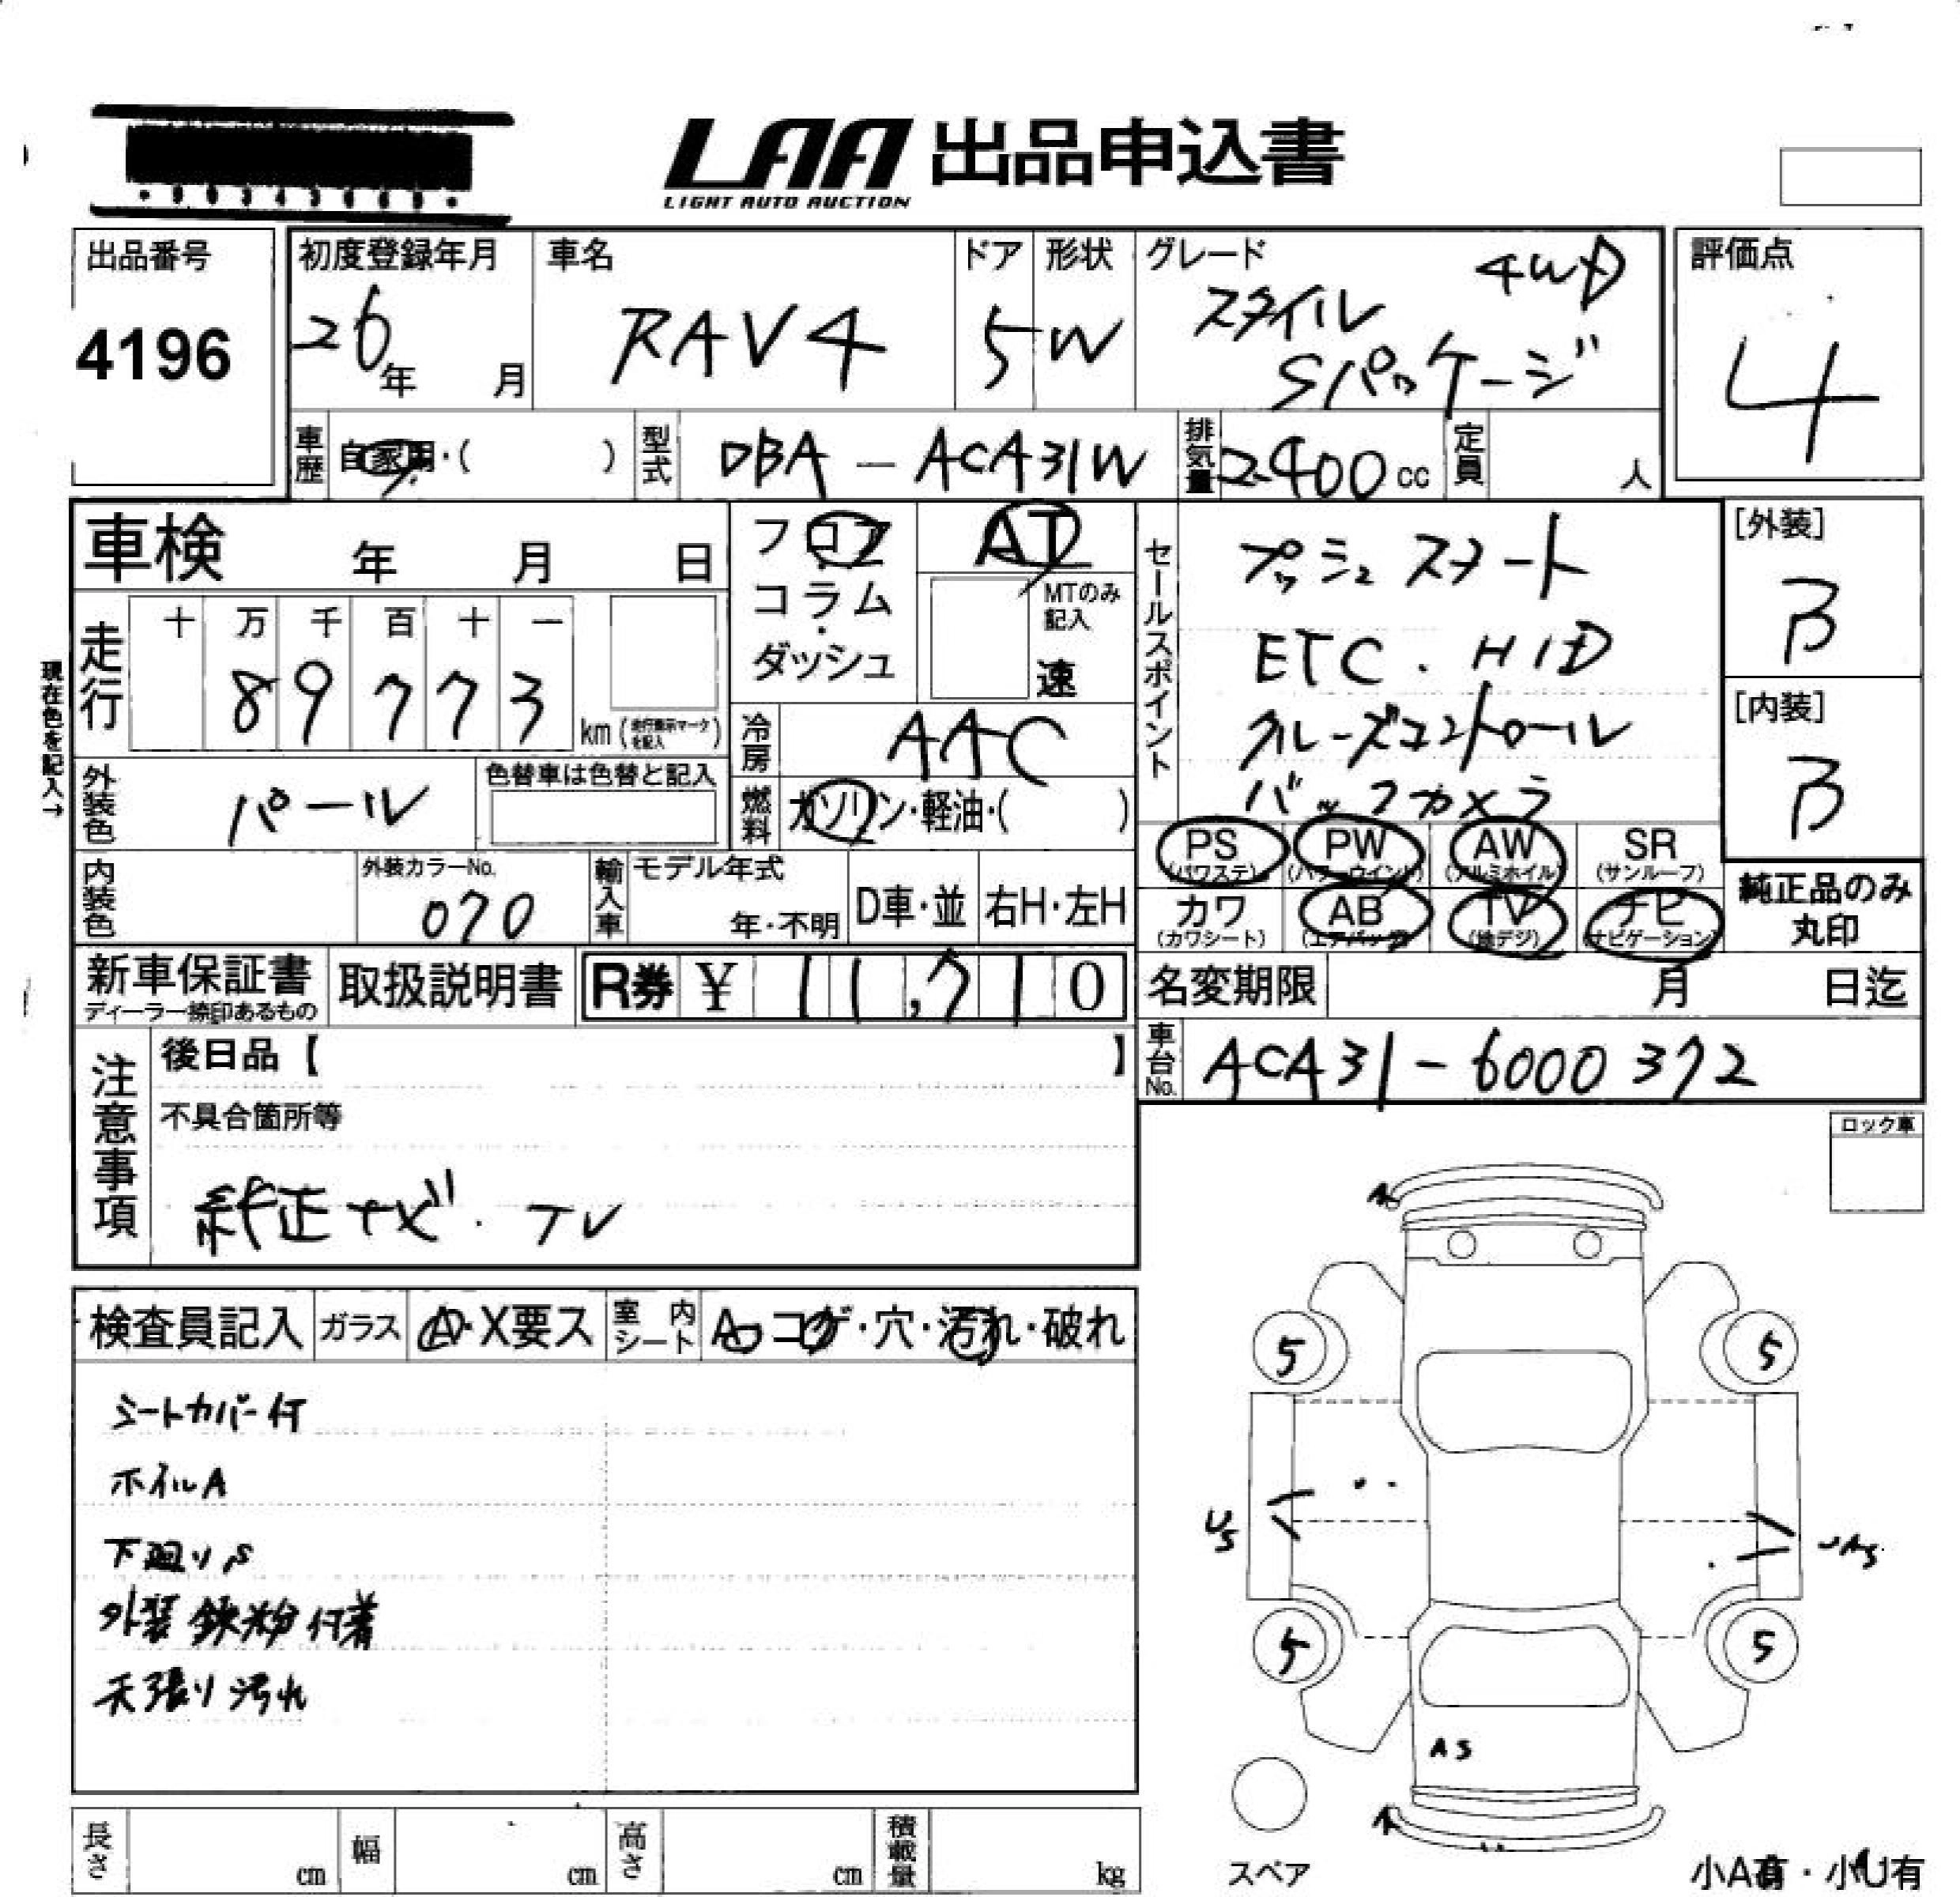 LAA 出品申込書
LIGHT AUTO AUCTION
出品番号
4196
初度登録年月
26年 月
車名
RAV4
ドア
5
形状
W
グレード
4WD
スタイル
Sパッケージ
評価点
4
車歴
自家用・( )
型式
DBA - ACA31W
排気量
2400cc
定員
人
車検 年 月 日
フロア
コラム
・
ダッシュ
AT
MTのみ
記入
速
セールスポイント
プッシュスタート
ETC . HID
クルーズコントロール
バックカメラ
[外装]
B
[内装]
B
現在色を記入→
走行
十 万 千 百 十 一
8 9 7 7 3
km(走行表示マークを記入)
冷房
AAC
外装色
パール
色替車は色替と記入
燃料
ガソリン・軽油・( )
PS (パワステ)
PW (パワーウインド)
AW (アルミホイル)
SR (サンルーフ)
カワ (カワシート)
AB (エアバッグ)
TV (地デジ)
ナビ (ナビゲーション)
純正品のみ
丸印
内装色
外装カラーNo.
070
輸入車
モデル年式
年・不明
D車・並
右H・左H
新車保証書
ディーラー捺印あるもの
取扱説明書
R券 ¥ 11,710
名変期限 月 日迄
車台No.
ACA31-6000372
注意事項
後日品【 】
不具合箇所等
純正ナビ . TV
ロック車
検査員記入
ガラス
A・X要ス
室内シート
A・コゲ・穴・汚れ・破れ
シートカバー付
ホイルA
下廻りS
外装鉄粉付着
天張り汚れ
A
5
5
US
UAS
5
5
AS
A
スペア
長さ cm
幅 cm
高さ cm
積載量 kg
小A有・小U有